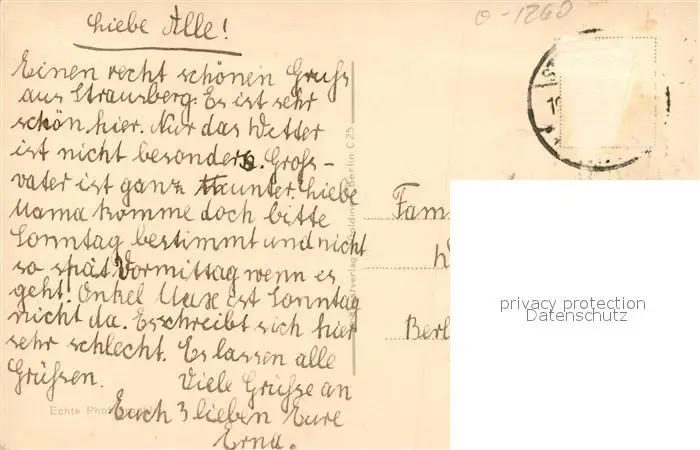 Liebe Alle!
Einen recht schönen Gruß
aus Strausberg. Es ist sehr
schön hier. Nur das Wetter
ist nicht besonders. Groß-
vater ist ganz munter. Liebe
Mama komme doch bitte
Sonntag bestimmt und nicht
so spät Vormittag wenn es
geht! Onkel Max ist Sonntag
nicht da. Es schreibt sich hier
sehr schlecht. Es lassen alle
Grüßen. Viele Grüsse an
Euch 3 lieben Eure
Erna.
Echte
Berlin C 25
0-1260
Fam
W
Berl
privacy protection
Datenschutz